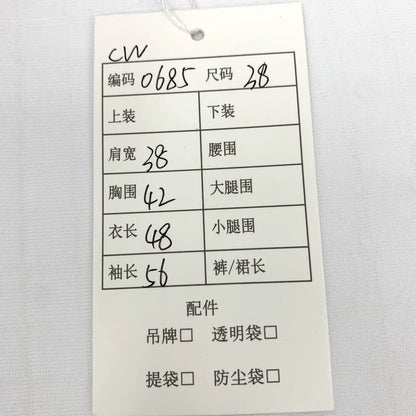 CW
编码 0685 尺码 38
上装 下装
肩宽 38 腰围
胸围 42 大腿围
衣长 48 小腿围
袖长 56 裤/裙长
配件
吊牌□ 透明袋□
提袋□ 防尘袋□